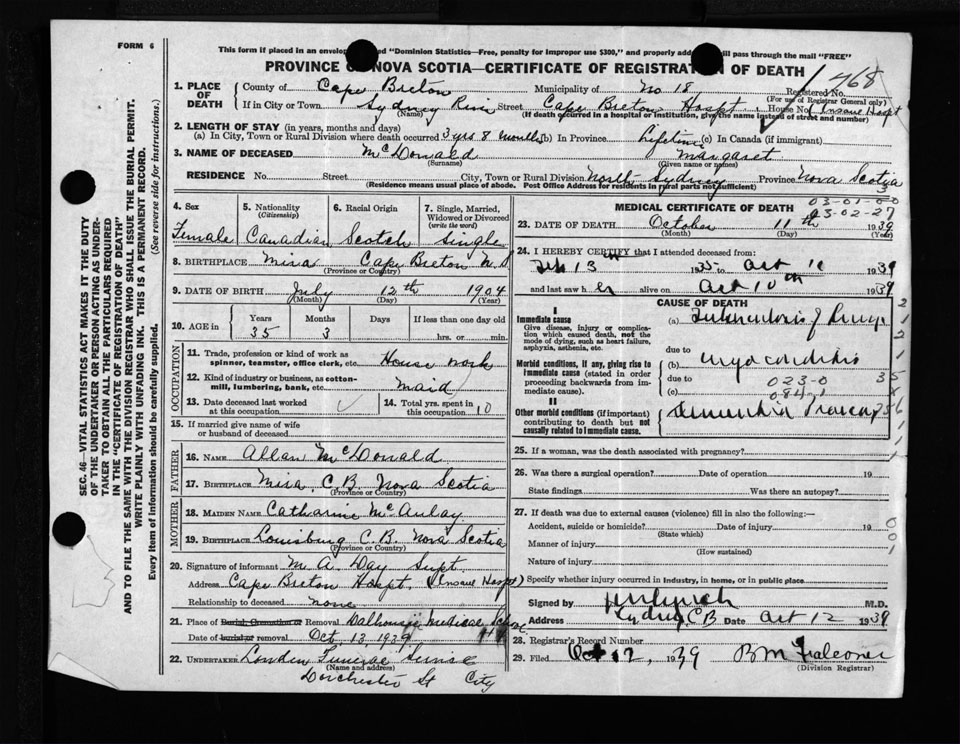 FORM 6
This form if placed in an envelope marked "Dominion Statistics—Free, penalty for improper use $300," and properly addressed will pass through the mail "FREE"
PROVINCE OF NOVA SCOTIA—CERTIFICATE OF REGISTRATION OF DEATH
468
Registered No.
(For use of Registrar General only)
1. PLACE OF DEATH
County of Cape Breton Municipality of No 18
If in City or Town Sydney River Street Cape Breton Hospt. House No. (Insane Hospt
(Name) (If death occurred in a hospital or institution, give the name instead of street and number)
2. LENGTH OF STAY (in years, months and days)
(a) In City, Town or Rural Division where death occurred 3 yrs 8 months (b) in Province Lifetime (c) In Canada (if immigrant)
3. NAME OF DECEASED McDonald Margaret
(Surname) (Given name or names)
RESIDENCE No. Street City, Town or Rural Division North Sydney Province Nova Scotia
(Residence means usual place of abode. Post Office Address for residents in rural parts not sufficient)
4. Sex 5. Nationality (Citizenship) 6. Racial Origin 7. Single, Married, Widowed or Divorced (write the word)
Female Canadian Scotch Single
8. BIRTHPLACE Mira Cape Breton N.S
(Province or Country)
9. DATE OF BIRTH July 12th 1904
(Month) (Day) (Year)
10. AGE in Years Months Days If less than one day old
35 3 hrs. or min.
OCCUPATION
11. Trade, profession or kind of work as spinner, teamster, office clerk, etc. House work
12. Kind of industry or business, as cotton-mill, lumbering, bank, etc. Maid
13. Date deceased last worked at this occupation 14. Total yrs. spent in this occupation 10
15. If married give name of wife or husband of deceased
FATHER
16. NAME Allan McDonald
17. BIRTHPLACE Mira, C.B. Nova Scotia
(Province or Country)
MOTHER
18. MAIDEN NAME Catharine McAulay
19. BIRTHPLACE Louisburg C.B. Nova Scotia
(Province or Country)
20. Signature of informant M. A. Day Supt.
Address Cape Breton Hospt. (Insane Hospt)
Relationship to deceased none
21. Place of Burial, Cremation or Removal Dalhousie Medical School
Date of burial or removal Oct. 13, 1939
22. UNDERTAKER London Funeral Service
(Name and address)
Dorchester St City
MEDICAL CERTIFICATE OF DEATH
03-01-00
03-02-27
23. DATE OF DEATH October 11th 1939
(Month) (Day) (Year)
24. I HEREBY CERTIFY that I attended deceased from:
Feb 13 1935 to Oct 10 1939
and last saw her alive on Oct 10th 1939
CAUSE OF DEATH
I
Immediate cause
Give disease, injury or complication which caused death, not the mode of dying, such as heart failure, asphyxia, asthenia, etc.
(a) Tuberculosis of Lungs
due to
Morbid conditions, if any, giving rise to immediate cause (stated in order proceeding backwards from immediate cause).
(b) Myocarditis
due to
(c)
023-0
084-1
II
Other morbid conditions (if important) contributing to death but not causally related to immediate cause.
Dementia Praecox
25. If a woman, was the death associated with pregnancy?
26. Was there a surgical operation? Date of operation 19
State findings Was there an autopsy?
27. If death was due to external causes (violence) fill in also the following:—
Accident, suicide or homicide? Date of injury 19
(State which)
Manner of injury
(How sustained)
Nature of injury
Specify whether injury occurred in industry, in home, or in public place
Signed by M.D.
Address Sydney, C B Date Oct 12 1939
28. Registrar's Record Number
29. Filed Oct 12, 1939 B M Falconer
(Division Registrar)
SEC. 46—VITAL STATISTICS ACT MAKES IT THE DUTY
OF THE UNDERTAKER OR PERSON ACTING AS UNDERTAKER TO OBTAIN ALL THE PARTICULARS REQUIRED
IN THE "CERTIFICATE OF REGISTRATION OF DEATH"
AND TO FILE THE SAME WITH THE DIVISION REGISTRAR WHO SHALL ISSUE THE BURIAL PERMIT.
WRITE PLAINLY WITH UNFADING INK. THIS IS A PERMANENT RECORD.
Every item of information should be carefully supplied. (See reverse side for instructions.)